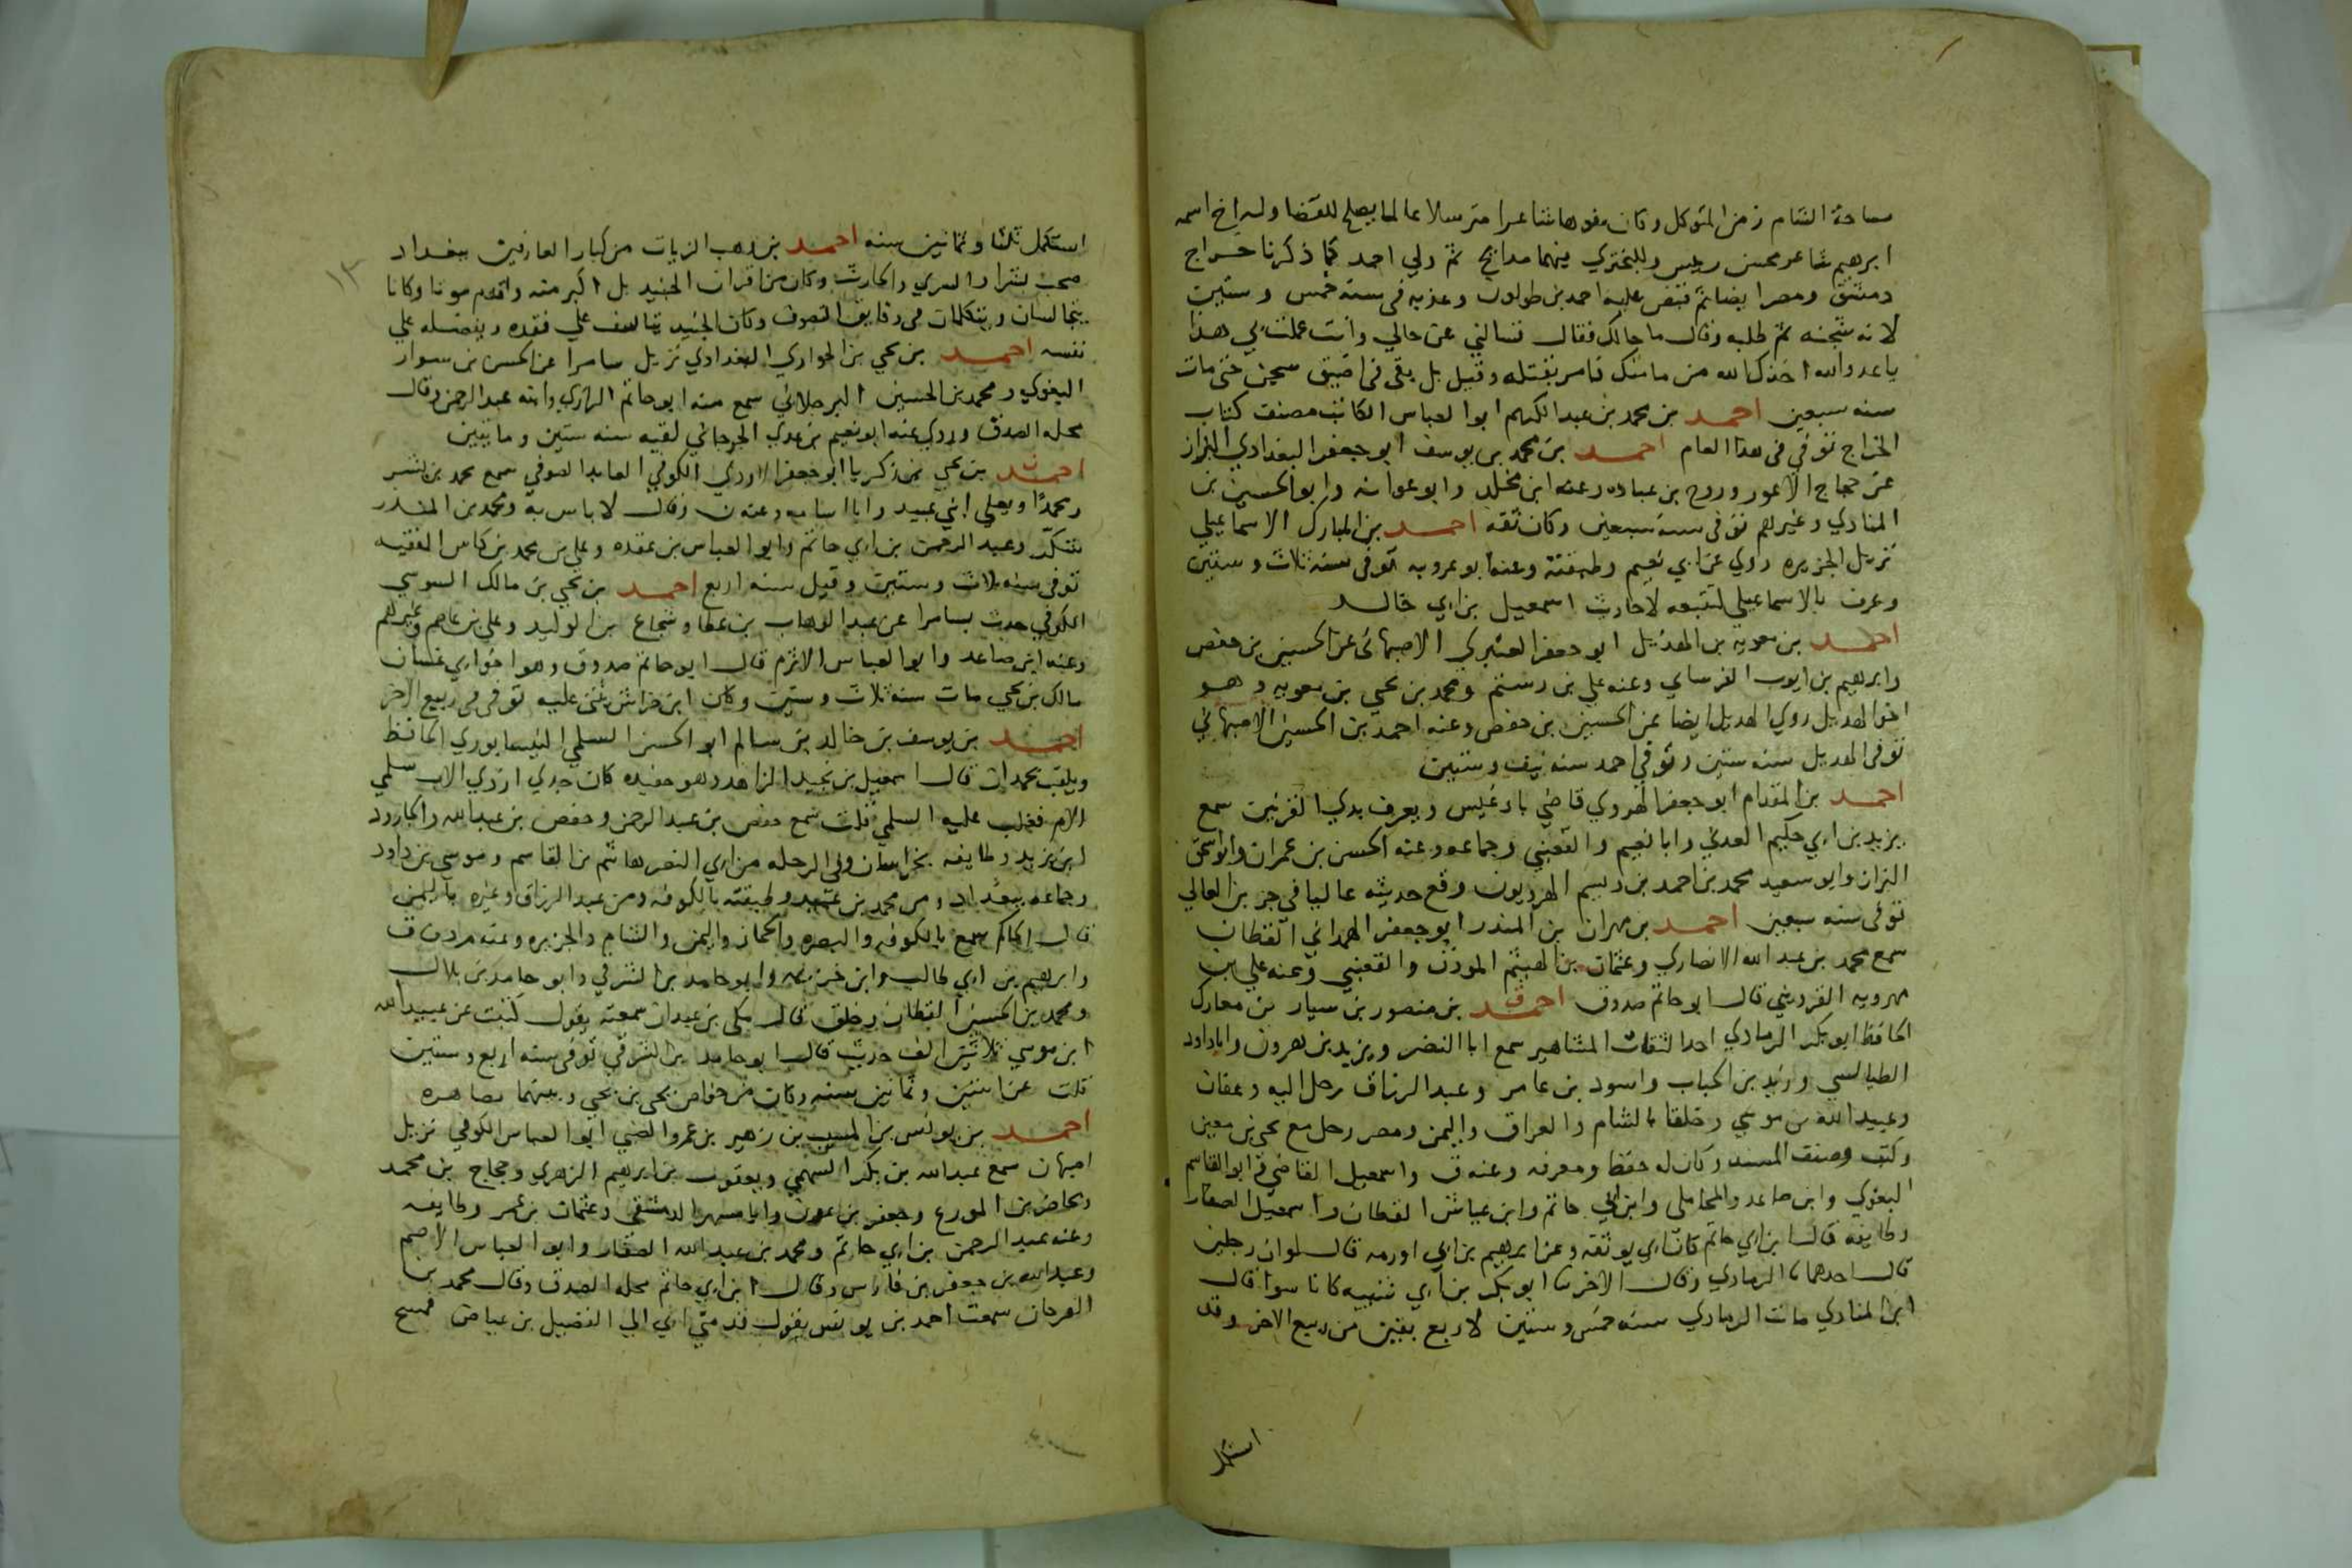 مساحة الشام زمن المتوكل وكان مفوها شاعرا مترسلا عالما يصلح للقضا وله اخ اسمه
ابرهيم شاعر محسن رييس وللبختري فيهما مدايح ثم ولي احمد كما ذكرنا خراج
دمشق ومصر ايضا ثم قبض عليه احمد بن طولون وعذبه في سنة خمس وستين
لانه سجنه ثم طلبه وقال ما حالك فقال تسالني عن حالي وانت عملت بي هذا
يا عدو الله اخذك الله من مامنك فامر بقتله وقيل بل بقي في اضيق سجن حتى مات
سنه سبعين احمد بن محمد بن عبد الكريم ابو العباس الكاتب مصنف كتاب
الخراج توفي في هذا العام احمد بن محمد بن يوسف ابو جعفر البغدادي البزاز
عن حجاج الاعور وروح بن عباده وعنه ابن مخلد وابو عوانه وابو الحسين بن
المنادي وغيرهم توفي سنة سبعين وكان ثقه احمد بن المبارك الاسماعيلي
نزيل الجزيره روي عن ابي نعيم وطبقته وعنه ابو عروبه توفي سنة ثلاث وستين
وعرف بالاسماعيلي لتتبعه لاحاديث اسمعيل بن ابي خالد
احمد بن معويه بن الهذيل ابو جعفر العنبري الاصبهاني عن الحسين بن حفص
وابرهيم بن ايوب الفرساي وعنه علي بن رستم ومحمد بن يحيي بن معويه وهو
اخو الهديل روي الهديل ايضا عن الحسين بن حفص وعنه احمد بن الحسين الاصبهاني
توفى الهديل سنه ستين وتوفي احمد سنه نيف وستين
احمد بن المقدام ابو جعفر الهروي قاضي بادغيس ويعرف بدي القرنين سمع
يزيد بن ابي حكيم العدني وابا نعيم والقعنبي وجماعه وعنه الحسن بن عمران وابو اسحق
البزاز وابو سعيد محمد بن احمد بن دبسم الهرويون وقع حديثه عاليا في جز بن الغالي
توفي سنه سبعين احمد بن مهران بن المنذر ابو جعفر الهمداني القطان
سمع محمد بن عبد الله الانصاري وعثمان بن الهيثم الموذن والقعنبي وعنه علي بن
مهرويه القزويني قال ابو حاتم صدوق احمد بن منصور بن سيار بن معارك
الحافظ ابو بكر الرمادي احد الثقات المشاهير سمع ابا النضر ويزيد بن هرون وابا داود
الطيالسي وزيد بن الحباب واسود بن عامر وعبد الرزاق رحل اليه وعفان
وعبيد الله بن موسي وخلقا بالشام والعراق واليمن ومصر رحل مع يحيي بن معين
وكتب وصنف المسند وكان له حفظ ومعرفه وعنه ق واسمعيل القاضي وابو القاسم
البغوي وابن صاعد والمحاملي وابن ابي حاتم وابن عياش القطان واسمعيل الصفار
وطايفه قال ابن ابي حاتم كان ابي يوثقه وعن ابرهيم بن ابي اورمه قال لو ان رجلين
قال احدهما ثنا الرمادي وقال الاخر ثنا ابو بكر بن ابي شيبه كانا سوا قال
ابن المنادي مات الرمادي سنه خمس وستين لاربع بقين من ربيع الاخر وقد
استكمل
استكمل ثلثا وثمانين سنه احمد بن وهب الزيات من كبار العارفين ببغداد
صحب بشرا والسري والحارث وكان من اقران الجنيد بل اكبر منه واقدم موتا وكانا
يتجالسان ويتكلمان في دقايق التصوف وكان الجنيد يتاسف علي فقده ويفضله علي
نفسه احمد بن يحي بن الحواري البغدادي نزيل سامرا عن الحسن بن سوار
البغوي ومحمد بن الحسين البرجلاني سمع منه ابو حاتم الرازي وابنه عبد الرحمن وقال
محله الصدق وروي عنه ابو نعيم بن عدي الجرجاني لقيه سنه ستين ومايتين
احمد بن يحيي بن زكريا ابو جعفر الاودي الكوفي العابد الصوفي سمع محمد بن بشر
ومحمدا ويعلي ابني عبيد وابا اسامه وعنه ن وقال لا باس به ومحمد بن المنذر
شكر وعبد الرحمن بن ابي حاتم وابو العباس بن عقده وعلي بن محمد بن كاس الفقيه
توفي سنه ثلاث وستين وقيل سنه اربع احمد بن يحيي بن مالك السوسي
الكوفي حدث بسامرا عن عبد الوهاب بن عطا وشجاع بن الوليد وعلي بن عاصم وغيرهم
وعنه ابن صاعد وابو العباس الاثرم قال ابو حاتم صدوق وهو اخو ابي غسان
مالك بن يحيي مات سنه ثلاث وستين وكان ابن خراش يثني عليه توفي في ربيع الاخر
احمد بن يوسف بن خالد بن سالم ابو الحسن السلمي النيسابوري الحافظ
ويلقب بحمدان قال اسمعيل بن نجيد الزاهد وهو حفيده كان جدي ازدي الاب سلمي
الام فغلب عليه السلمي قلت سمع حفص بن عبد الرحمن وحفص بن عبد الله والجارود
ابن يزيد وطايفه بخراسان وفي الرحله من ابي النضر هاشم بن القاسم وموسي بن داود
وجماعه ببغداد ومن محمد بن عبيد وطبقته بالكوفه ومن عبد الرزاق وغيره باليمن
قال الحاكم سمع بالكوفه والبصره والحجاز واليمن والشام والجزيره وعنه م د ن ق
وابرهيم بن ابي طالب وابن خزيمه وابو حامد بن الشرقي وابو حامد بن بلال
ومحمد بن الحسين القطان وخلق قال مكي بن عبدان سمعته يقول كتبت عن عبيد الله
ابن موسي ثلاثين الف حديث قال ابو حامد بن الشرقي توفي سنه اربع وستين
قلت عن اثنين وثمانين سنه وكان من خواص يحيي بن يحيي وبينهما مصاهره
احمد بن يونس بن المسيب بن زهير بن عمرو الضبي ابو العباس الكوفي نزيل
اصبهان سمع عبد الله بن بكر السهمي ويعقوب بن ابرهيم الزهري وحجاج بن محمد
ومحاضر بن المورع وجعفر بن عون وابا مسهر الدمشقي وعثمان بن عمر وطايفه
وعنه عبد الرحمن بن ابي حاتم ومحمد بن عبد الله الصفار وابو العباس الاصم
وعبد الله بن جعفر بن فارس وقال ابن ابي حاتم محله الصدق وقال محمد بن
الفرخان سمعت احمد بن يونس يقول قدمني ابي الي الفضيل بن عياض فمسح
١٣